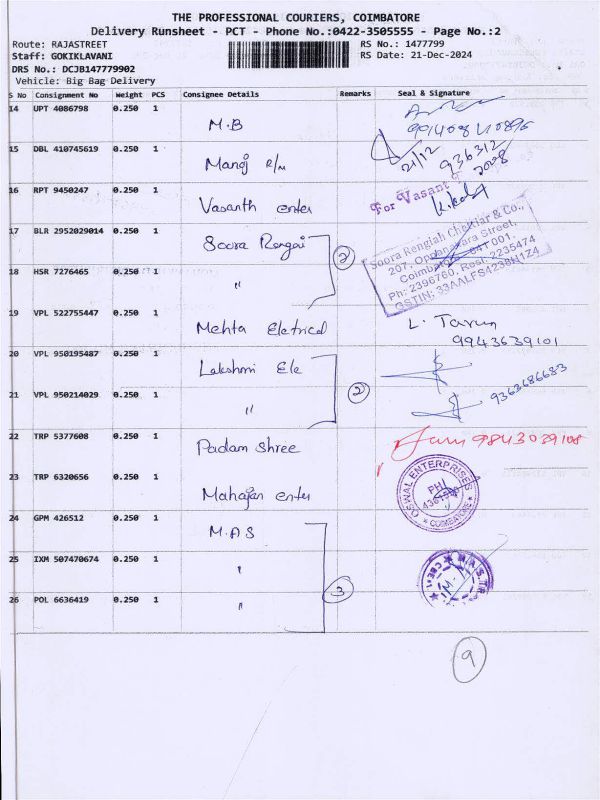 THE PROFESSIONAL COURIERS, COIMBATORE
Delivery Runsheet - PCT - Phone No.:0422-3505555 - Page No.:2
Route: RAJASTREET RS No.: 1477799
Staff: GOKIKLAVANI RS Date: 21-Dec-2024
DRS No.: DCJB147779902
Vehicle: Big Bag Delivery
S No Consignment No Weight PCS Consignee Details Remarks Seal & Signature
14 UPT 4086798 0.250 1 M.B
15 DBL 410745619 0.250 1 Manoj R/M 21/12 936312
16 RPT 9450247 0.250 1 Vasanth enter For Vasant
17 BLR 2952029014 0.250 1 Soora Rengai 2 Soora Rengiah Chettiar & Co.,
207, Oppanakara Street,
Coimbatore - 641 001.
Ph: 2396760, Resi: 2235474
GSTIN: 33AALFS4238N1Z4
18 HSR 7276465 0.250 1 "
19 VPL 522755447 0.250 1 Mehta Eletrical L. Tarun
9943639101
20 VPL 950195487 0.250 1 Lakshmi Ele 2
21 VPL 950214029 0.250 1 " 9363686683
22 TRP 5377608 0.250 1 Padam Shree 9843039108
23 TRP 6320656 0.250 1 Mahajan enter OSWAL ENTERPRISES
PH:
COIMBATORE
24 GPM 426512 0.250 1 M.A.S
25 IXM 507470674 0.250 1 "
26 POL 6636419 0.250 1 " 3
9